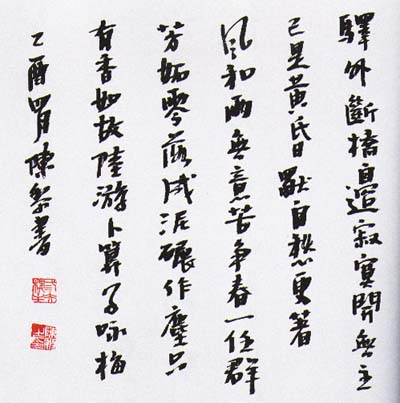 驛外斷橋邊寂寞開無主
已是黃昏獨自愁更著
風和雨無意苦爭春一任群
芳妬零落成泥碾作塵只
有香如故陸游卜算子咏梅
乙酉四月陳書